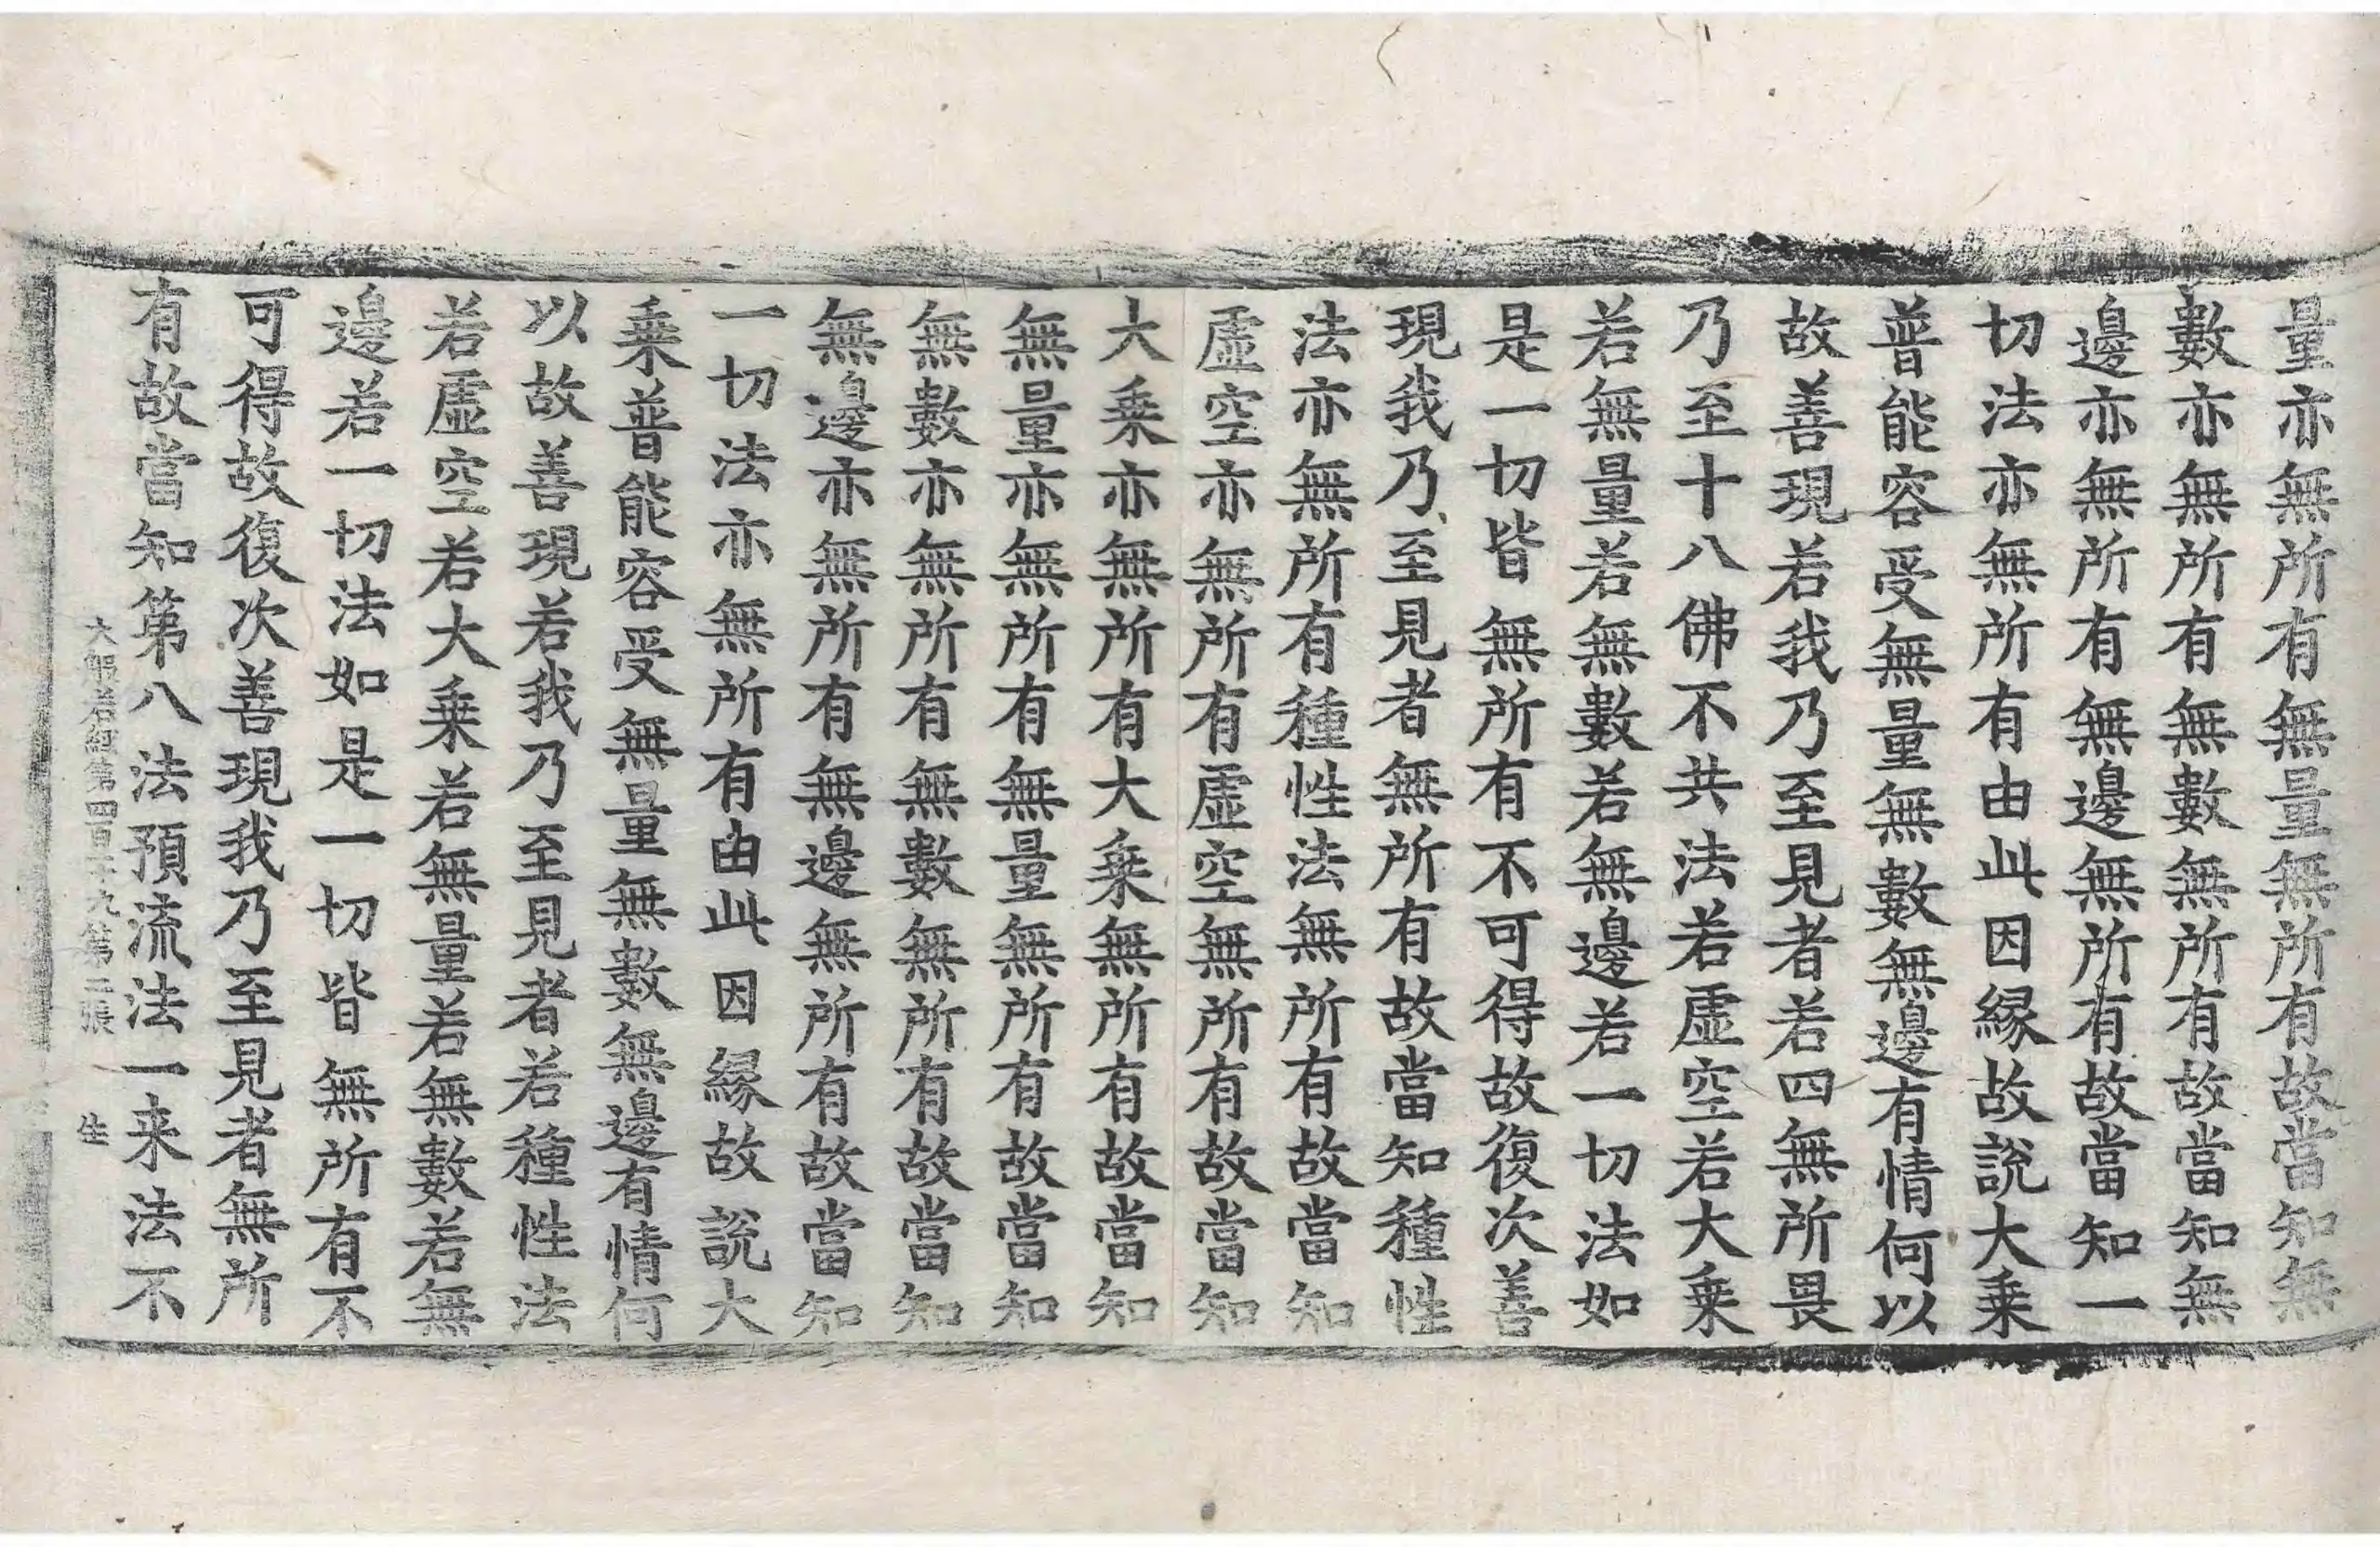 量亦無所有無量無所有故當知無
數亦無所有無數無所有故當知無
邊亦無所有無邊無所有故當知一
切法亦無所有由此因緣故說大乗
普能容受無量無數無邊有情何以
故善現若我乃至見者若四無所畏
乃至十八佛不共法若虛空若大乗
若無量若無數若無邊若一切法如
是一切皆無所有不可得故復次善
現我乃至見者無所有故當知種性
法亦無所有種性法無所有故當知
虛空亦無所有虛空無所有故當知
大乗亦無所有大乗無所有故當知
無量亦無所有無量無所有故當知
無數亦無所有無數無所有故當知
無邊亦無所有無邊無所有故當知
一切法亦無所有由此因緣故說大
乗普能容受無量無數無邊有情何
以故善現若我乃至見者若種性法
若虛空若大乗若無量若無數若無
邊若一切法如是一切皆無所有不
可得故復次善現我乃至見者無所
有故當知第八法預流法一来法不
大般若經第四百十九第二張 生